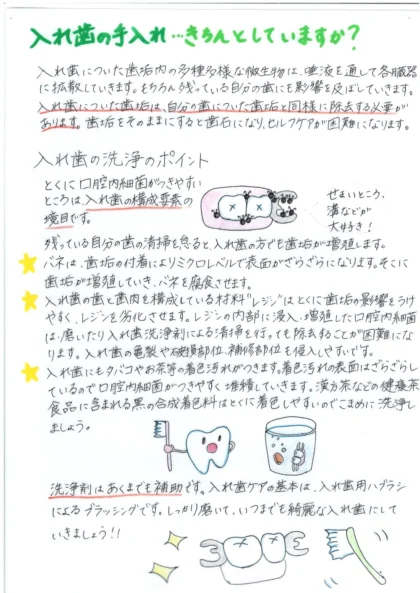 入れ歯の手入れ…きちんとしていますか？
入れ歯についた歯垢内の多種多様な微生物は、唾液を通して各臓器
に拡散していきます。もちろん残っている自分の歯にも影響を及ぼしていきます。
入れ歯についた歯垢は、自分の歯についた歯垢と同様に除去する必要が
あります。歯垢をそのままにすると歯石になり、セルフケアが困難になります。
入れ歯の洗浄のポイント
とくに口腔内細菌がつきやすい
ところは、入れ歯の構成要素の
境目です。
せまいところ、
溝などが
大好き！
残っている自分の歯の清掃を怠ると、入れ歯の方でも歯垢が増殖します。
バネは、歯垢の付着によりミクロレベルで表面がざらざらになります。そこに
歯垢が増殖していき、バネを腐食させます。
入れ歯の歯と歯肉を構成している材料"レジン"はとくに歯垢の影響をうけ
やすく、レジンを劣化させます。レジンの内部に浸入、増殖した口腔内細菌
は、磨いたり入れ歯洗浄剤による清掃を行っても除去することが困難にな
ります。入れ歯の亀裂や破損部位、補修部位も侵入しやすいです。
入れ歯にもタバコやお茶等の着色汚れがつきます。着色汚れの表面はざらざらし
ているので口腔内細菌がつきやすく堆積していきます。漢方茶などの健康茶
食品に含まれる黒の合成着色料はとくに着色しやすいのでこまめに洗浄し
ましょう。
洗浄剤はあくまでも補助です。入れ歯ケアの基本は、入れ歯用ハブラシ
によるブラッシングです。しっかり磨いて、いつまでも綺麗な入れ歯にして
いきましょう！！